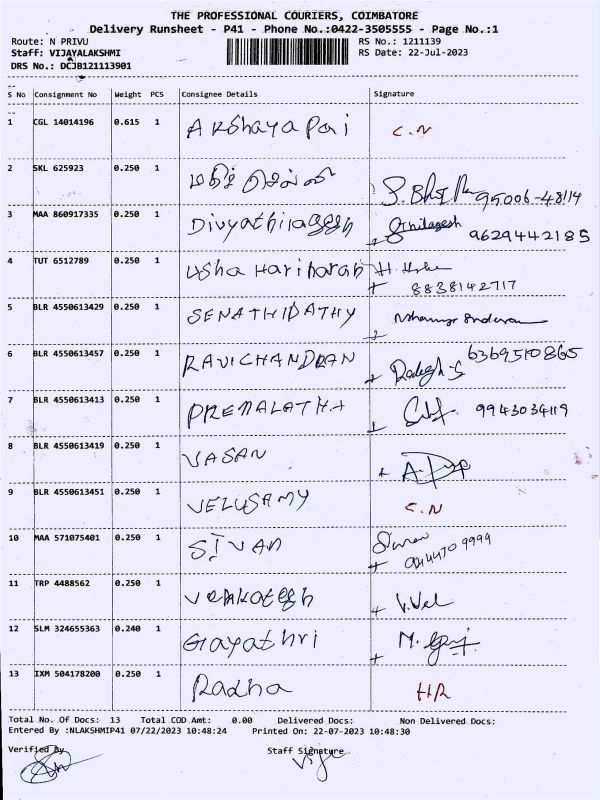 THE PROFESSIONAL COURIERS, COIMBATORE
Delivery Runsheet - P41 - Phone No.:0422-3505555 - Page No.:1
Route: N PRIVU RS No.: 1211139
Staff: VIJAYALAKSHMI RS Date: 22-Jul-2023
DRS No.: DCJB121113901
S No Consignment No Weight PCS Consignee Details Signature
1 CGL 14014196 0.615 1 Akshaya Pai C.N
2 SKL 625923 0.250 1 95006-48114
3 MAA 860917335 0.250 1 Divyathiragesh
9629442185
4 TUT 6512789 0.250 1 Usha Hariharan
8838142717
5 BLR 4550613429 0.250 1 SENATHIPATHY
6 BLR 4550613457 0.250 1 RAVICHANDRAN 6369510865
7 BLR 4550613413 0.250 1 PREMALATHA 9943034119
8 BLR 4550613419 0.250 1 VASAN
9 BLR 4550613451 0.250 1 VELUSAMY C.N
10 MAA 571075401 0.250 1 SIVAN
11 TRP 4488562 0.250 1 Venkatesh V.Vel
12 SLM 324655363 0.240 1 Gayathri
13 IXM 504178200 0.250 1 Radha HR
Total No. Of Docs: 13 Total COD Amt: 0.00 Delivered Docs: Non Delivered Docs:
Entered By :NLAKSHMIP41 07/22/2023 10:48:24 Printed On: 22-07-2023 10:48:30
Verified By Staff Signature